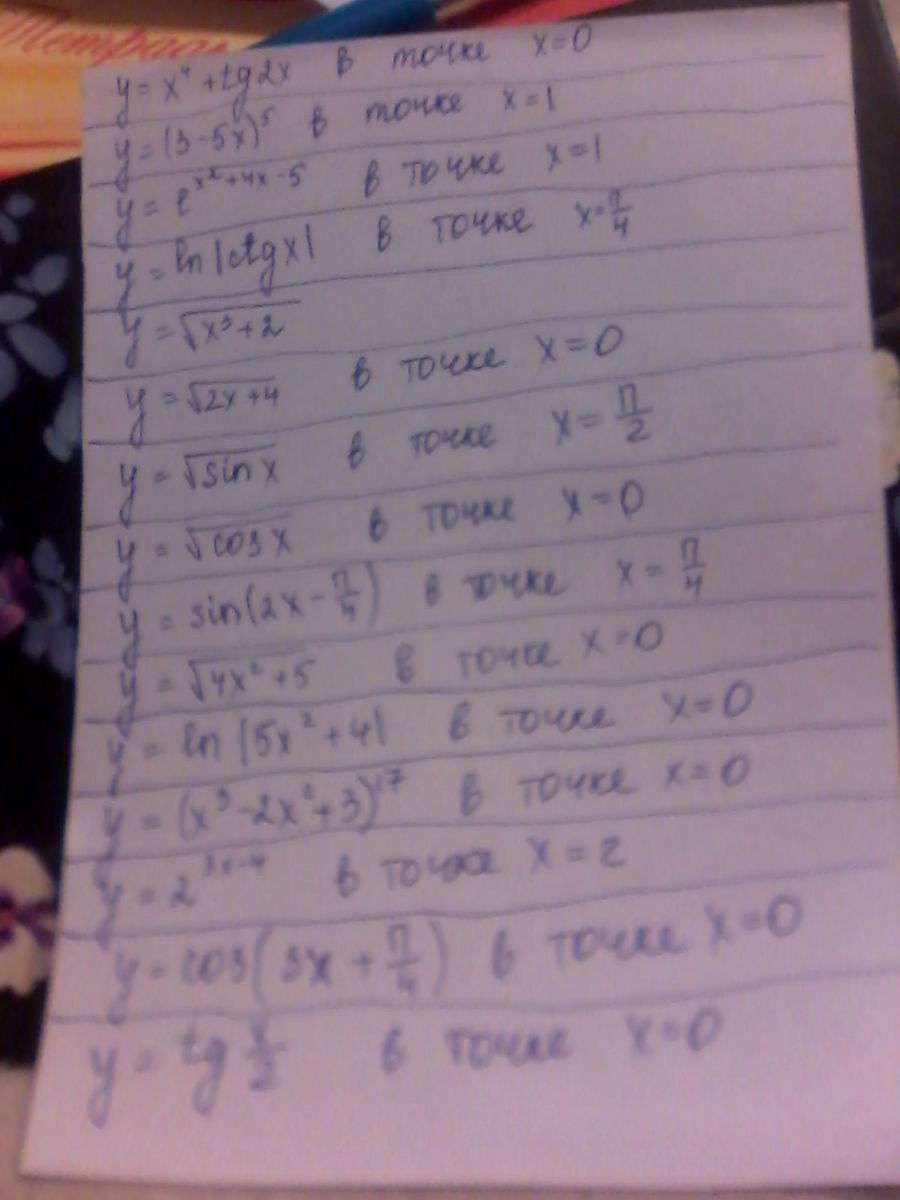 Тетрадь
y = x⁴ + tg2x в точке x=0
y = (3-5x)⁵ в точке x=1
y = e^(x²+4x-5) в точке x=1
y = ln|ctgx| в точке x=π/4
y = √(x³+2)
y = √(2x+4) в точке x=0
y = √(sin x) в точке x = π/2
y = √(cos x) в точке x=0
y = sin(2x-π/4) в точке x = π/4
y = √(4x²+5) в точке x=0
y = ln|5x²+4| в точке x=0
y = (x³-2x²+3)¹⁷ в точке x=0
y = 2^(3x-4) в точке x=2
y = cos(3x + π/4) в точке x=0
y = tg x/2 в точке x=0